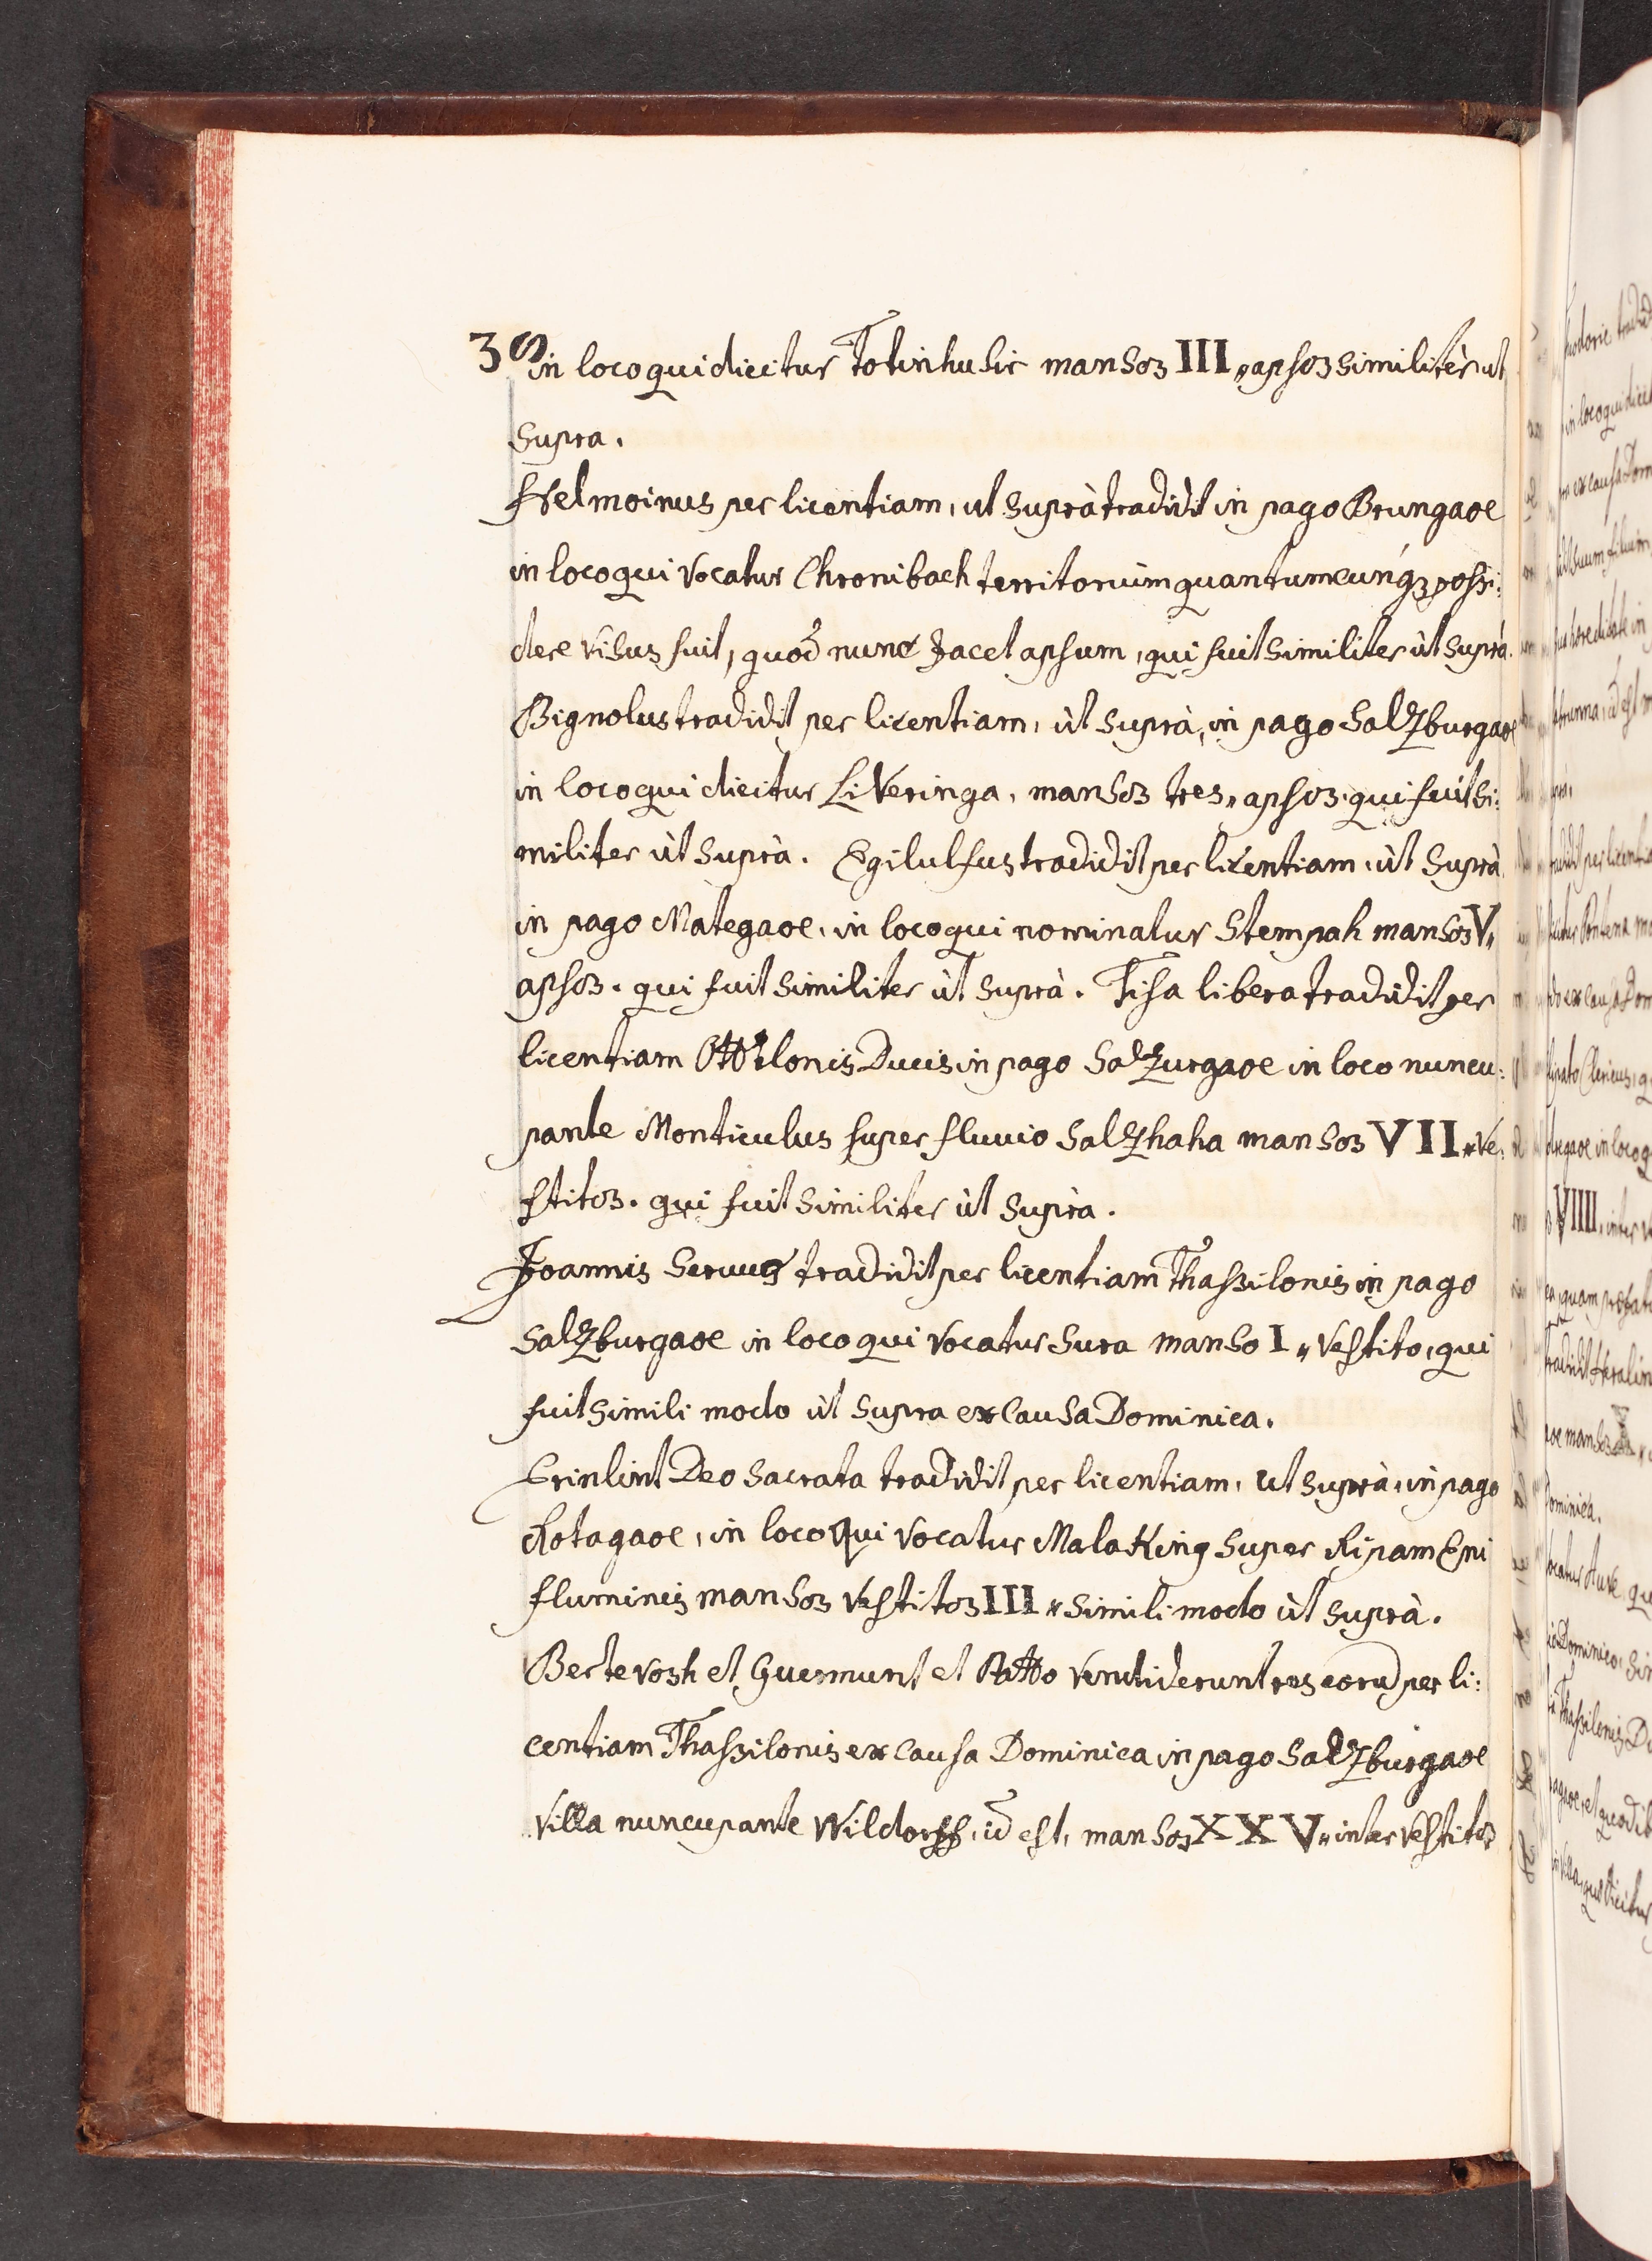 in loco qui dicitur Totinhusir mansos III „ apsos similitèr ut
supra.
Helmoinus per licentiam, ut suprà tradidit in pago Brungaoe
in loco qui vocatur Chronibach territoriùm quantumcunq3 possi:
dere visus fuit, quod nunc Jacet apsum, qui fuit similiter ùt suprà.
Bignolus tradidit per licentiam, ùt suprà, in pago Salzburgaoe
in loco qui dicitur Liveringa, mansos tres „ apsos. qui fuit si:
militer ùt suprà. Egilulfus tradidit per licentiam, ùt suprà
in pago Mategaoe, in loco qui nominatur Stempah mansos V„
apsos. qui fuit similiter ùt suprà. Tisa libera tradidit per
licentiam Ottilonis Ducis in pago Salzurgaoe in loco nuncu:
pante Monticulus super fluvio Salzhaha mansos VII „ Ve:
stitos. qui fuit similiter ùt suprà.
Joannis Servus tradidit per licentiam Thassilonis in pago
Salzburgaoe in loco qui vocatur Sura manso I „ Vestito, qui
fuit simili modo ùt supra ex Causa Dominica.
Erinlint Deo Sacrata tradidit per licentiam, ut suprà, in pago
Rotagaoe, in loco qui vocatur Malaking super Ripam Eni
fluminis mansos Vestitos III „ simili modo ùt suprà.
Bertevosh et Guermunt et Patto Venditiderunt res eorum per li:
centiam Thassilonis ex Causa Dominica in pago Salzburgaoe
Villa nuncupante Wildorff, id est, mansos XXV „ inter Vestitos